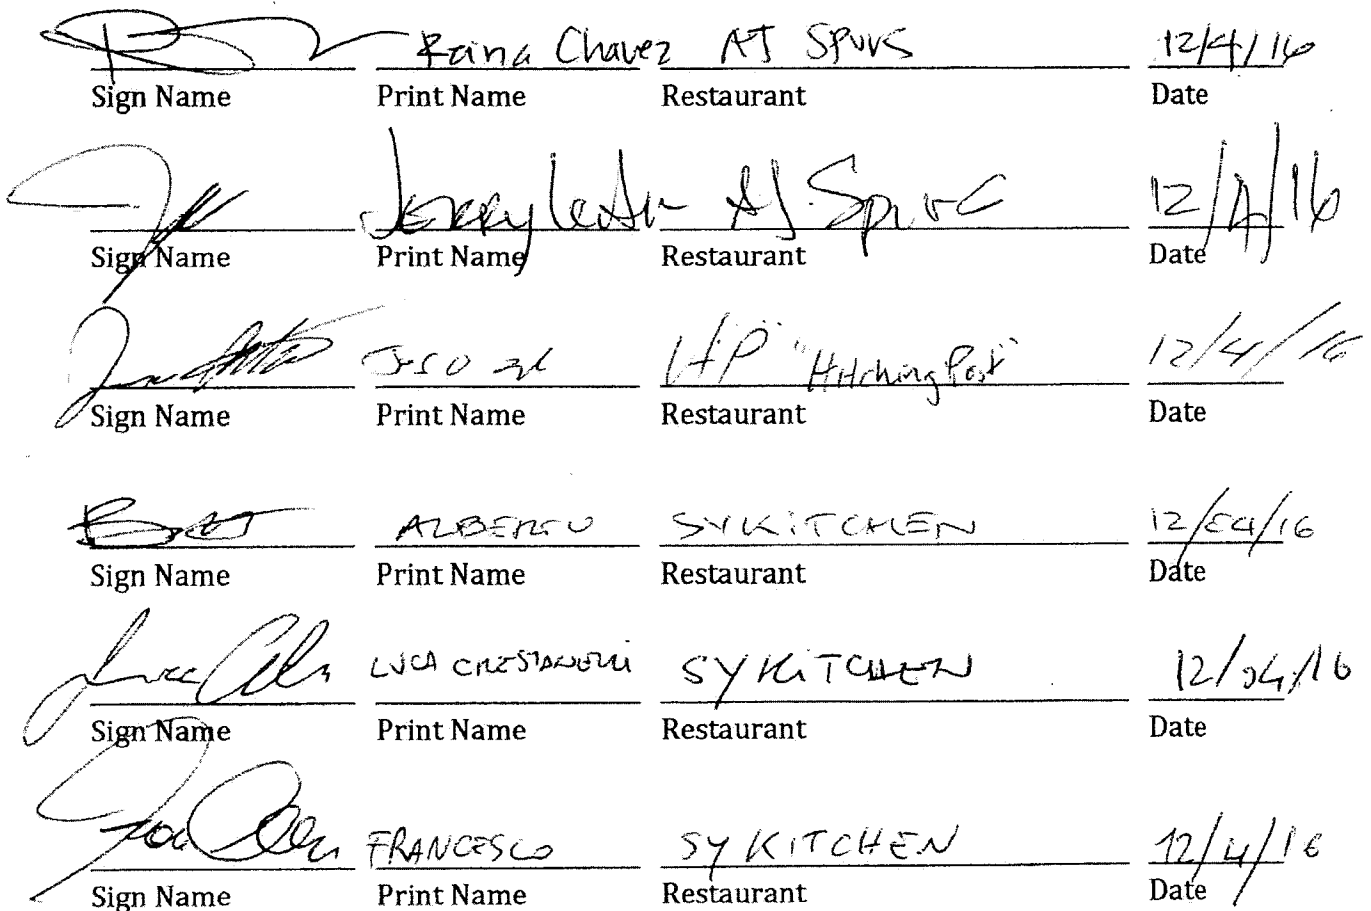 Raina Chavez AJ Spurs 12/4/16
Sign Name Print Name Restaurant Date
Jerry AJ Spurs 12/4/16
Sign Name Print Name Restaurant Date
HP "Hitching Post" 12/4/16
Sign Name Print Name Restaurant Date
ALBERTO SYKITCHEN 12/04/16
Sign Name Print Name Restaurant Date
LUCA CRESTANELLI SY KITCHEN 12/04/16
Sign Name Print Name Restaurant Date
FRANCESCO SY KITCHEN 12/4/16
Sign Name Print Name Restaurant Date